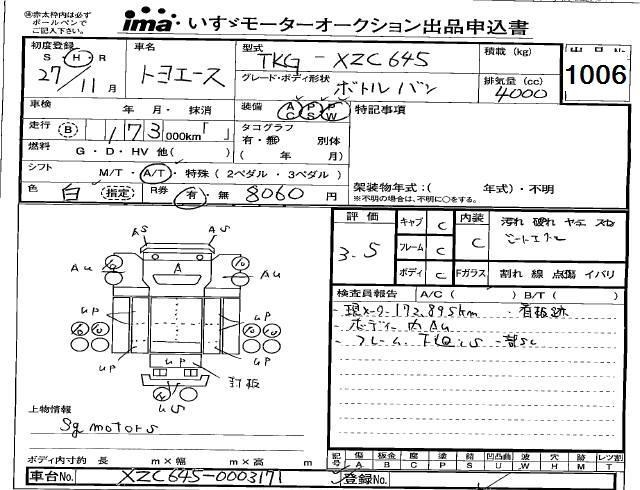 ㊟赤太枠内は必ず
ボールペンで
ご記入下さい。
ima いすゞモーターオークション出品申込書
初度登録 S・H・R 27/11月
車名 トヨエース
型式 TKG-XZC645
グレード・ボディ形状 ボトルバン
積載(kg)
排気量(cc) 4000
出品No.
1006
車検 年・月・抹消
装備 AC PS PW
特記事項
走行 B 173,000km「」
タコグラフ 有・無 別体
( 年 月)
燃料 G・D・HV 他( )
シフト M/T・A/T・特殊(2ペダル・3ペダル)
架装物年式:( 年式)・不明
※不明の場合は、不明に○をする。
色 白 (指定) R券 有・無 8060円
評価 3.5
キャブ C
フレーム C
ボディ C
内装 C
Fガラス
汚れ 破れ ヤニ スレ
割れ 線 点傷 イバリ
検査員報告 A/C( ) B/T( )
現メーター172,895km 看板跡
ボディー内AU
AS AS
AU AU
A
UP UP
UP UP
UP
釘板
US
上物情報
Sg motors
ボディ内寸約 長 m×幅 m×高 m
記号 傷 A 板金 B 腐 C 塗 P 錆 S 凹凸曲 U 波 W 穴 H 跡 M レツ割 T
車台No. XZC645-0003171
登録No.